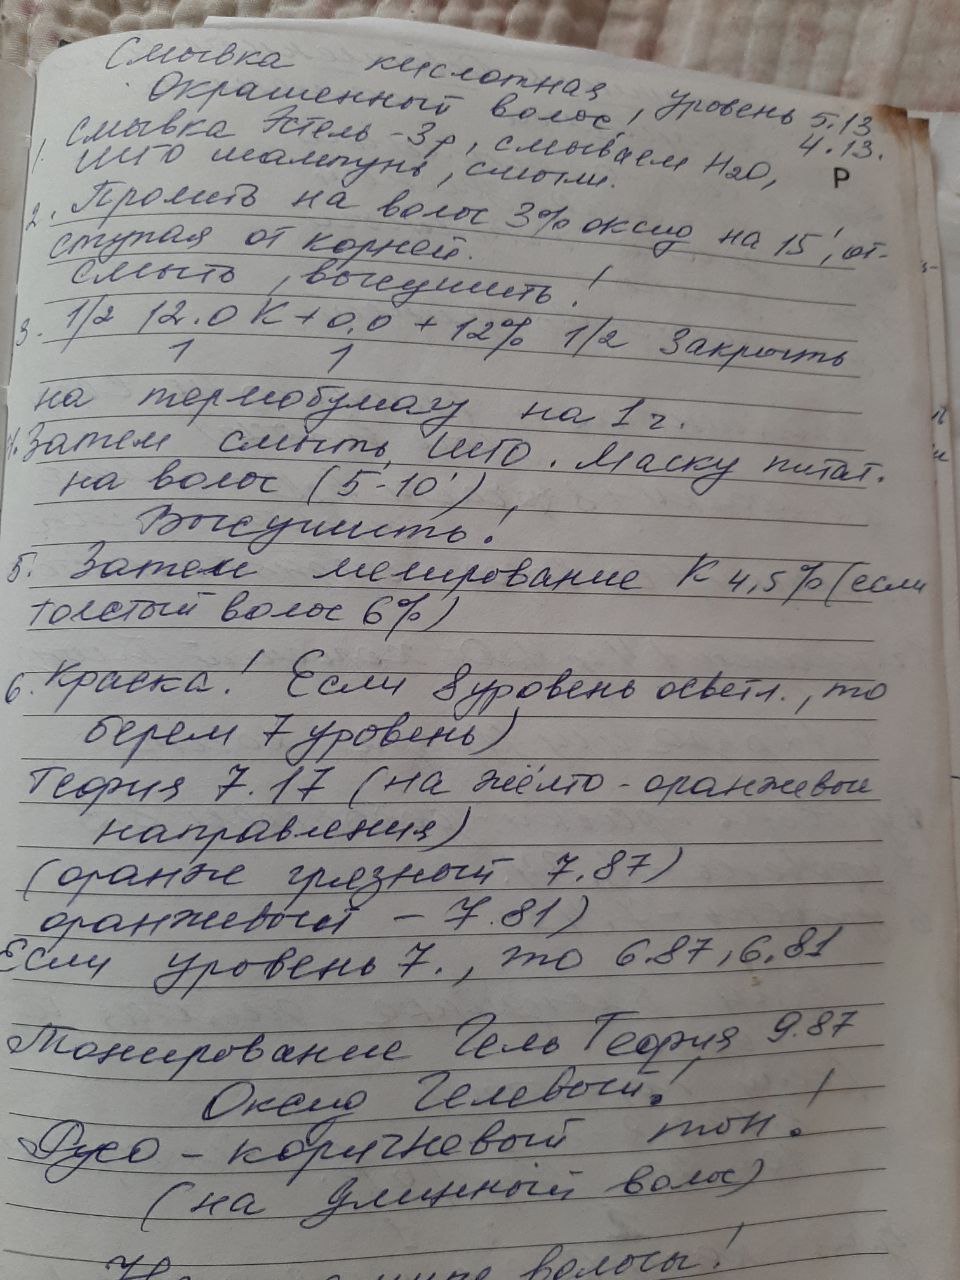 Смывка кислотная
Окрашенный волос, уровень 5.13
4.13.
1. Смывка Эстель - 3 р, смываем H2O,
ШГО шампунь, смыли.
Р
2. Промыть на волос 3% оксид на 15', от-
ступая от корней.
смыть, высушить!
3. 1/2 12.0 К + 0.0 + 12% 1/2 Закрыть
1 1
на термобумагу на 1 ч.
4. Затем смыть, ШГО. Маску питат.
на волос (5-10')
Высушить!
5. Затем мелирование К 4,5% (если
толстый волос 6%)
6. Краска! Если 8 уровень осветл., то
берем 7 уровень)
Теория 7.17 (на жёлто-оранжевые
направления)
(оранж грязный 7.87)
оранжевый - 7.81)
Если уровень 7., то 6.87, 6.81
Тонирование Гель Теория 9.87
Оксид Гелевый!
Русо-коричневый тон!
(на длинный волос)
волосы!